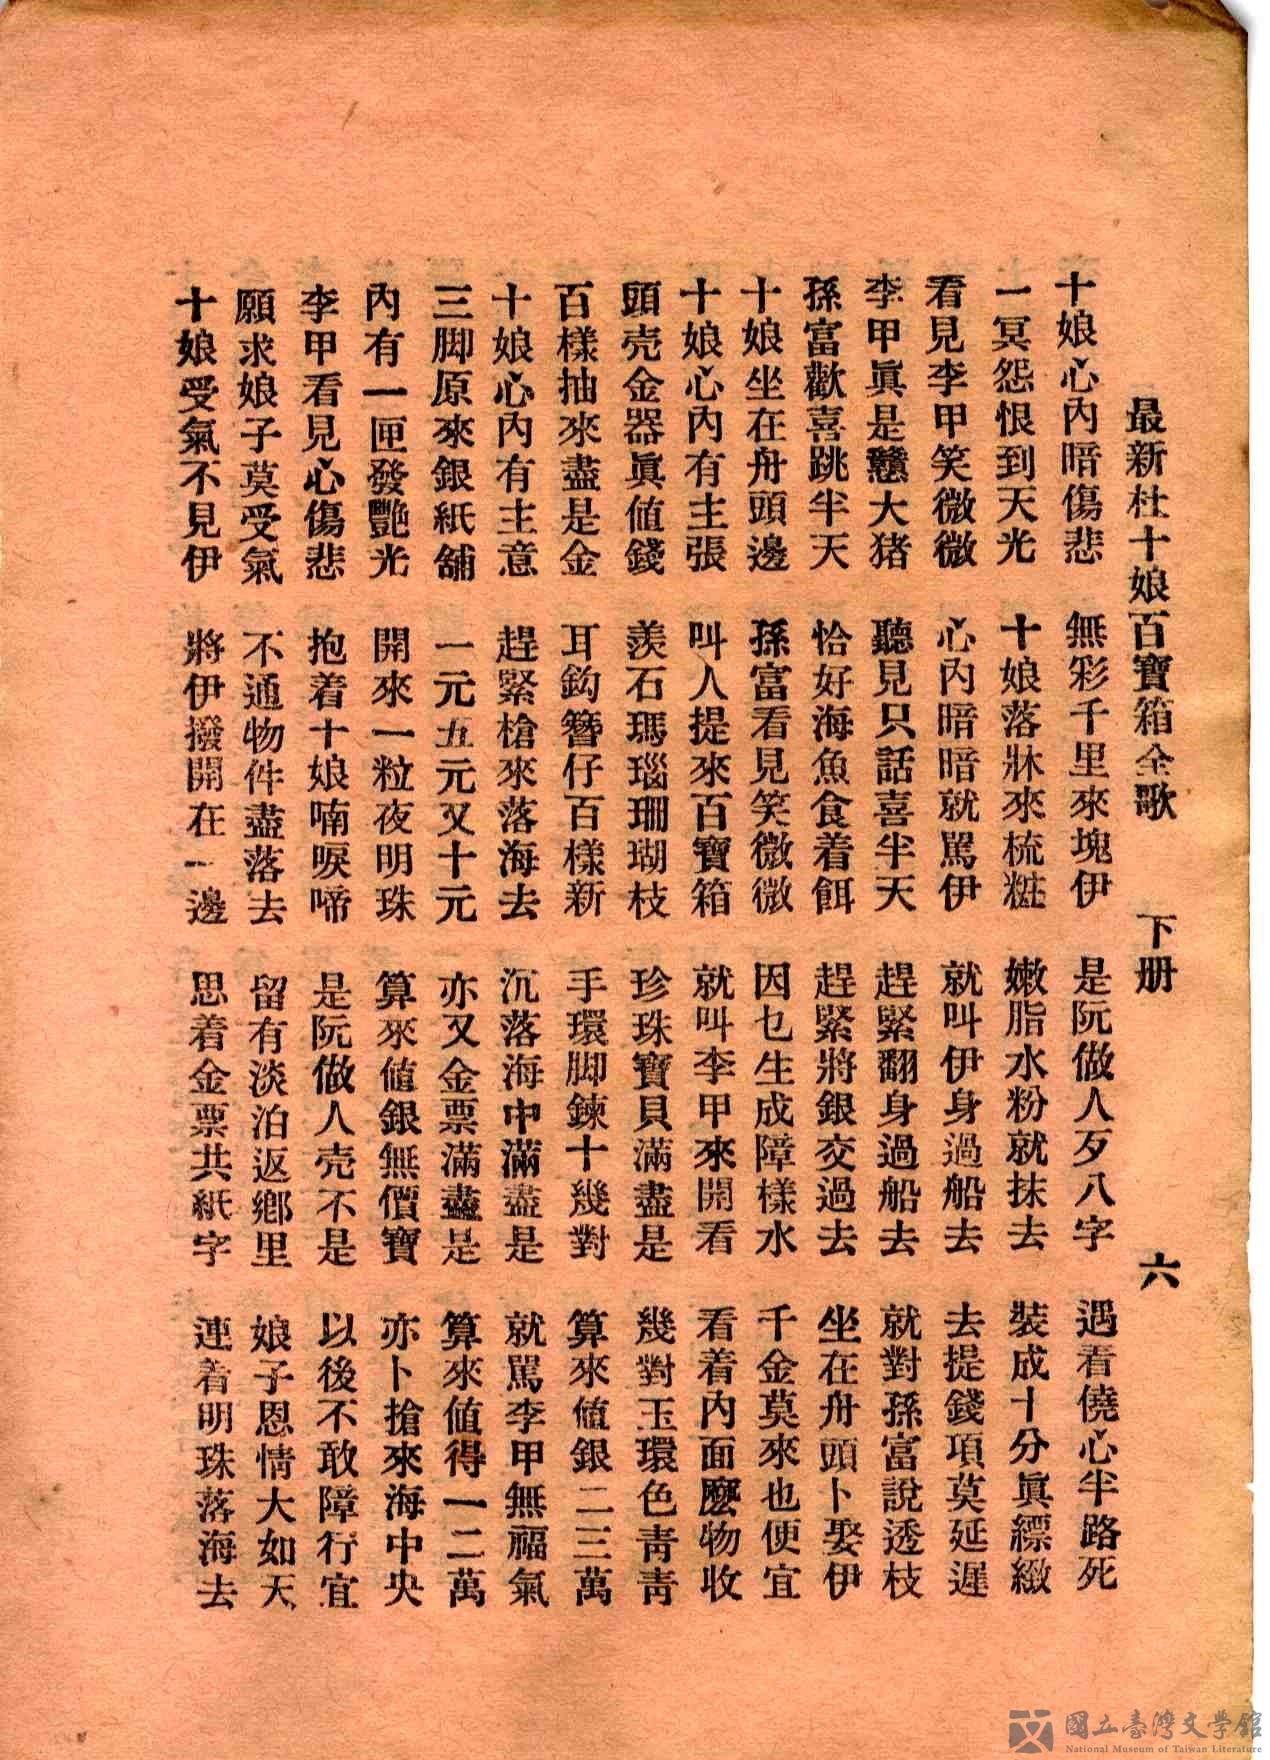 最新杜十娘百寶箱全歌 下册 六
十娘心內暗傷悲 無彩千里來塊伊 是阮做人歹八字 遇看僥心半路死
一冥怨恨到天光 十娘落牀來梳粧 嫩脂水粉就抹去 裝成十分眞縹緻
看見李甲笑微微 心內暗暗就罵伊 就叫伊身過船去 去提錢項莫延遲
李甲眞是戇大猪 聽見只話喜半天 趕緊翻身過船去 就對孫富說透枝
孫富歡喜跳半天 恰好海魚食着餌 趕緊將銀交過去 坐在舟頭卜娶伊
十娘坐在舟頭邊 孫富看見笑微微 因乜生成障樣水 千金莫來也便宜
十娘心內有主張 叫人提來百寶箱 就叫李甲來開看 看着內面麼物收
頭壳金器眞値錢 羨石瑪瑙珊瑚枝 珍珠寶貝滿盡是 幾對玉環色靑靑
百樣抽來盡是金 耳鈎簪仔百樣新 手環脚鍊十幾對 算來値銀二三萬
十娘心內有主意 趕緊槍來落海去 沉落海中滿盡是 就罵李甲無福氣
三脚原來銀紙舖 一元五元又十元 亦又金票滿盡是 算來値得一二萬
內有一匣發艷光 開來一粒夜明珠 算來値銀無價寶 亦卜搶來海中央
李甲看見心傷悲 抱着十娘喃唳啼 是阮做人壳不是 以後不敢障行宜
願求娘子莫受氣 不通物件盡落去 留有淡泊返鄉里 娘子恩情大如天
十娘受氣不見伊 將伊撥開在一邊 思着金票共紙字 連着明珠落海去
國立臺灣文學館
National Museum of Taiwan Literature